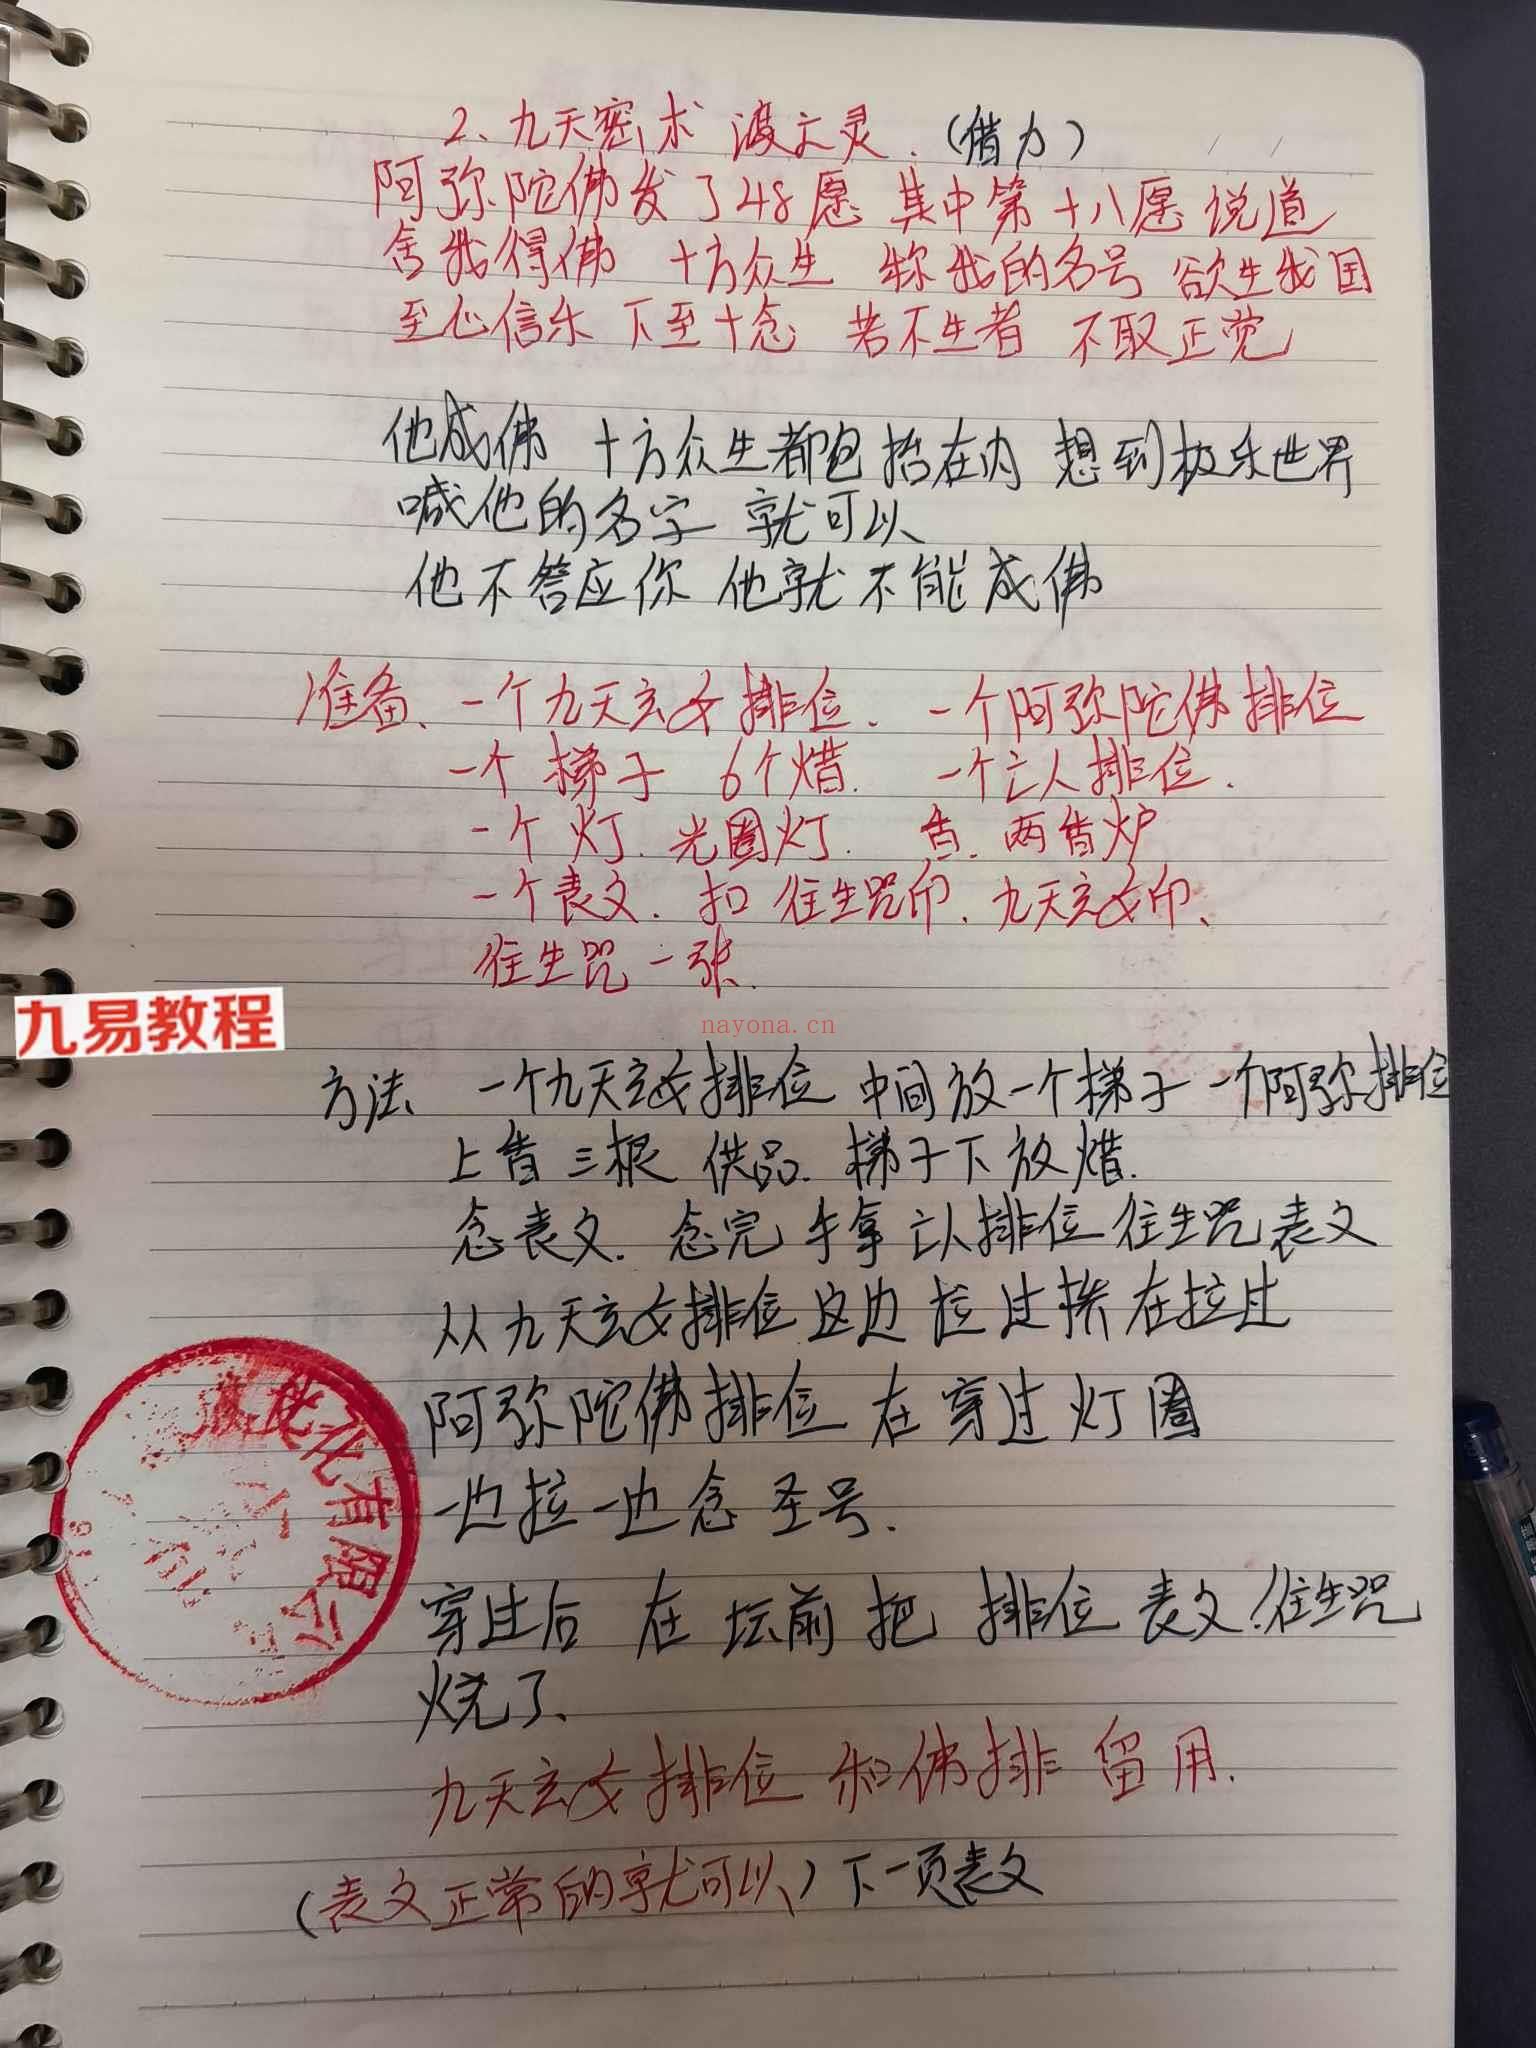 2、九天密术 渡亡灵.（借力）
阿弥陀佛发了48愿 其中第十八愿 说道
舍我得佛 十方众生 称我的名号 欲生我国
至心信乐 下至十念 若不生者 不取正觉
他成佛 十方众生都包括在内 想到极乐世界
喊他的名字 就可以
他不答应你 他就不能成佛
准备、一个九天玄女排位、一个阿弥陀佛排位
一个梯子 6个烛. 一个亡人排位.
一个灯. 光圈灯. 香. 两香炉
一个表文. 扣 往生咒印. 九天玄女印、
往生咒一张.
九易教程
nayona.cn
方法、一个九天玄女排位 中间放一个梯子 一个阿弥排位
上香三根 供品. 梯子下放烛.
念表文. 念完 手拿亡人排位 往生咒 表文
从九天玄女排位这边 拉过 在拉过
阿弥陀佛排位 在穿过灯圈
一边拉一边念圣号.
穿过后 在坛前把 排位 表文.往生咒
烧了.
九天玄女排位 和佛排 留用.
（表文正常的就可以）下一页表文
化有限公